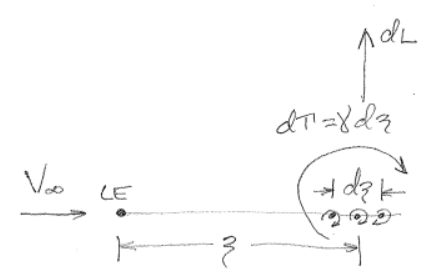 dL
dΓ = γ dξ
V∞
LE
dξ
ξ